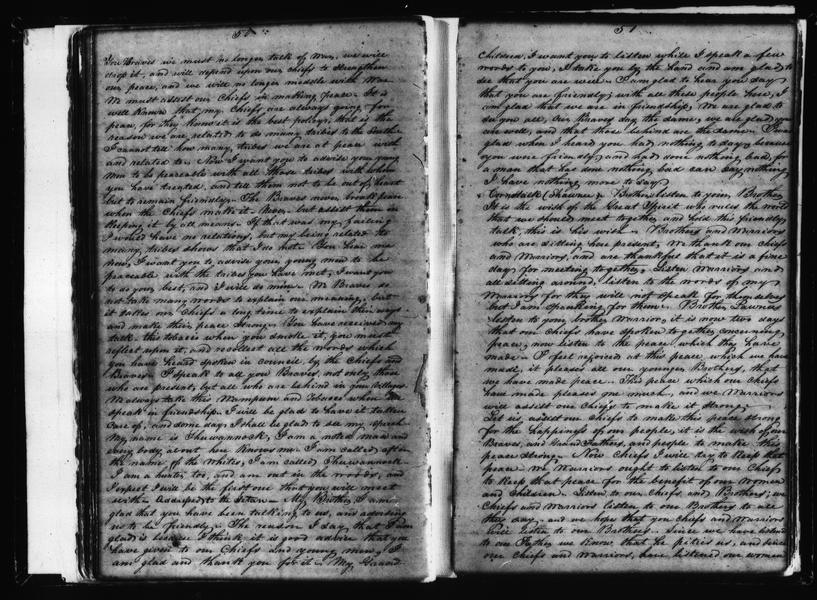 50
You Braves we must no longer talk of War, we will
drop it, and will depend upon our chiefs to strengthen
our peace, and we will no longer meddle with War
We must assist our Chiefs in making peace - It is
well Known that my Chiefs are always going for
peace, for they Know it is the best policy, that is the
reason we are related to so many tribes to the South
I cannot tell how many, tribes we are at peace with
and related to - Now I want you to advise your young
men to be peaceable with all those tribes with whom
you have treated, and tell them not to be out of heart
but to remain friendly - The Braves never break peace
when the Chiefs make it. Never - but assist them in
Keeping it by all means - If that was my failing
I would have no relations, but my being related to
many, tribes shows that I do not - You hear me
now, I want you to advise your young men to be
peaceable with the tribes you have met, I want you
to do your best, and I will do mine - We Braves do
not take many words to explain our meaning, but
it takes our Chiefs a long time to explain their ways
and make their peace strong - You have received my
talk, the tobacco when you smoke it, you must
reflect upon it, and recollect all the words which
you have heard spoken in council by the Chiefs and
Braves - I speak to all you Braves not only those
who are present, but all who are behind in your villages
We always take this Wampum and Tobacco when we
speak in friendship. I will be glad to have it taken
care of, and some day I shall be glad to see my speech
My name is Shuwannock, I am a noted man and
every body, about here Knows me. I am called after
the name of the Whites, I am called Shuwannock
I am a hunter too, and am out in the woods, and
I expect I will be the first one that you will meet
with - to the - My Brother I am
glad that you have been talking to us, and advising
us to be friendly - The reason I say that I am
glad is because I think it is good advice that you
have given to our Chiefs and young men, I
am glad and thank you for it - My Grand
51
Children, I want you to listen while I speak a few
words to you, I take you by the hand and am glad to
see that you are well - I am glad to hear you say
that you are friendly with all these people here, I
am glad that we are in friendship, We are glad to
see you all, Our Braves say the same, we are glad you
are well, and that those behind are the same - I was
glad when I heard you had nothing to say because
you were friendly and had done nothing bad, for
a man that has done nothing bad can say nothing
I have nothing more to say
Cornstalk (Shawnee) - Brothers listen to your Brother
It is the wish of the Great Spirit who rules the world
that we should meet together and hold this friendly
talk, this is his wish - Brothers and Warriors
who are sitting here present, We thank our Chiefs
and Warriors, and are thankful that it is a fine
day for meeting together. Listen Warriors and
all sitting around, listen to the words of my
Warriors for they will not speak for themselves
but I am speaking for them - Brother Pawnees
listen to your brother Warrior, it is now two days
that our Chiefs have spoken together concerning
peace, now listen to the peace which they have
made - I feel rejoiced at this peace which we have
made, it pleases all our younger Brothers, that
we have made peace - This peace which our Chiefs
have made pleases me much, and we Warriors
will assist our Chiefs to make it strong
Let us assist our Chiefs to make this peace strong
for the happiness of our people, it is the wish of our
Braves, and Grand Fathers, and people to make this
peace strong - Now Chiefs I will try to Keep that
peace - We Warriors ought to listen to our Chiefs
to Keep that peace for the benefit of our Women
and Children - Listen to our Chiefs and Brothers; we
Chiefs and Warriors listen to our Brothers to all
they say, and we hope that you Chiefs and Warriors
will listen to our Brothers - Since we have listened
to our Father we Know that he pities us, and since
our Chiefs and Warriors, have listened our women